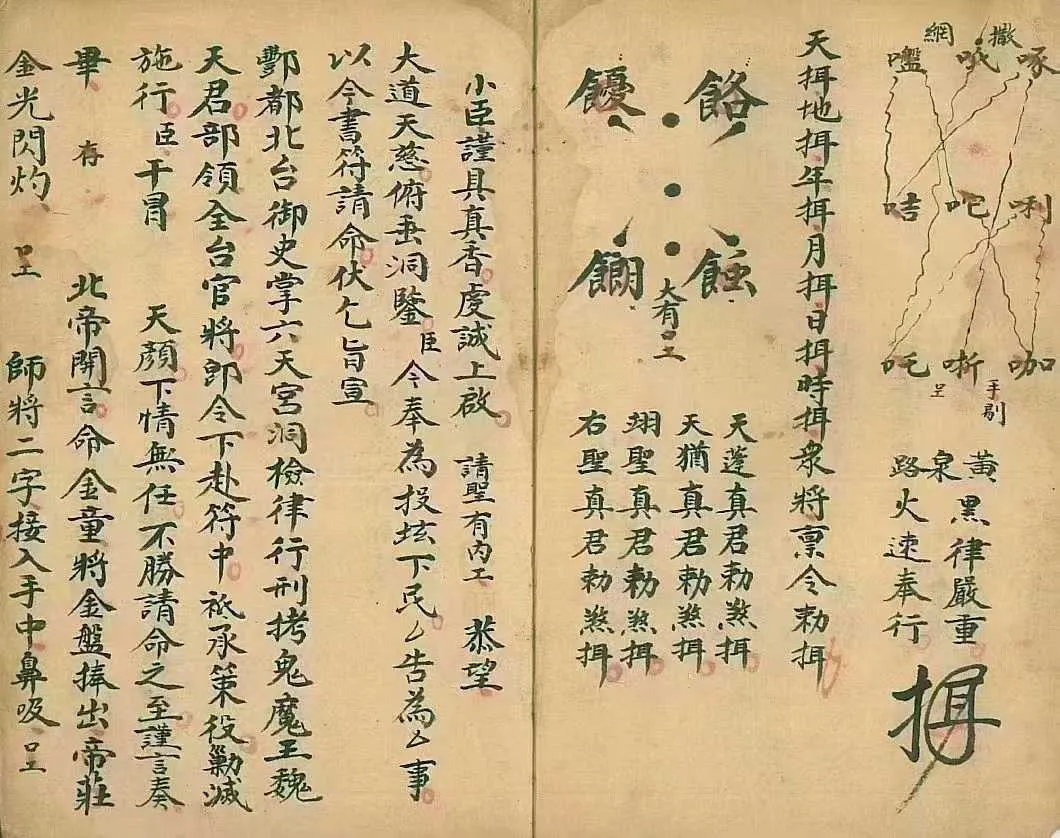 網 撒
嚂 哦 啄
咭 咜 唎
吒 哳 咖
手剔
黃泉路
黑律嚴重
火速奉行
㧱
天揖地揖年揖月揖日揖時揖衆將禀令勅揖
天蓬真君勅煞揖
天猶真君勅煞揖
翊聖真君勅煞揖
右聖真君勅煞揖
大有
小臣謹具真香虔誠上啟 請聖有內工 恭望
大道天慈俯垂洞鑒臣今奉為投坛下民厶告為厶事
以今書符請命伏乞旨宣
酆都北台御史掌六天宮洞檢律行刑拷鬼魔王魏
天君部領全台官將即令下赴符中祗承策役勦滅
施行臣干冒 天顏下情無任不勝請命之至謹言奏
畢 存 北帝開言命金童將金盤捧出帝莊
金光閃灼 師將二字接入手中鼻吸